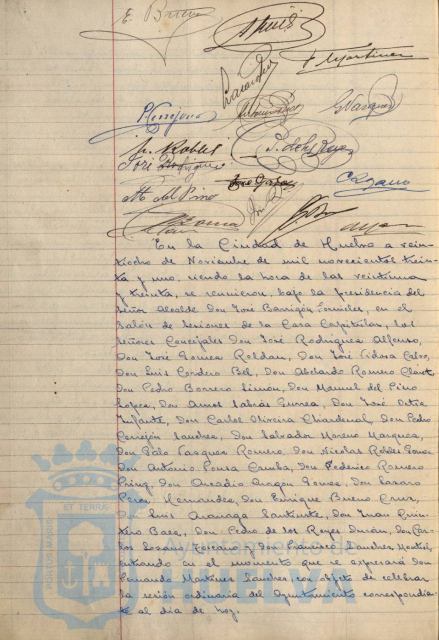 E. Bueno
F. Martinez
P. Cerrejón
G. Vazquez
N. Robles
P. de los Reyes
José Rodríguez
M. del Pino
C. Lozano
En la Ciudad de Huelva a vein-
tiocho de Noviembre de mil novecientos trein-
ta y uno, siendo la hora de las veintiuna
y treinta, se reunieron, bajo la presidencia del
Señor Alcalde Don José Barrigón Fornieles, en el
Salón de Sesiones de la Casa Capitular, los
señores Concejales Don José Rodríguez Alfonso,
Don José Gomea Roldan, Don José Calvo,
Don Luis Cordero Bel, Don Abelardo Romero Claret,
Don Pedro Borrero Limón, Don Manuel del Pino
Don Amos Sabrás Gurrea, Don José
Infante, Don Carlos Oliveira Chardenal, Don Pedro
Cerrejón Sanchez, Don Salvador Moreno Marquez,
Don Vazquez Romero, Don Nicolas Robles Gomez
Don Antonio Ponsa Camba, Don Federico Romero
Don Arcadio Aragon Gomez, Don Lazaro
Perea Hernandez, Don Enrique Bueno Cruz,
Don Luis Don Juan Quin-
tero Baez, Don Pedro de los Reyes Durán, Don Car-
los Lozano y Don Francisco Sanchez
entrando en el momento que se expresará Don
Fernando Martinez Sanchez, con objeto de celebrar
la sesión ordinaria del Ayuntamiento correspondien-
te al dia de hoy.
ET TERRAE
Ayuntamiento de
HUELVA